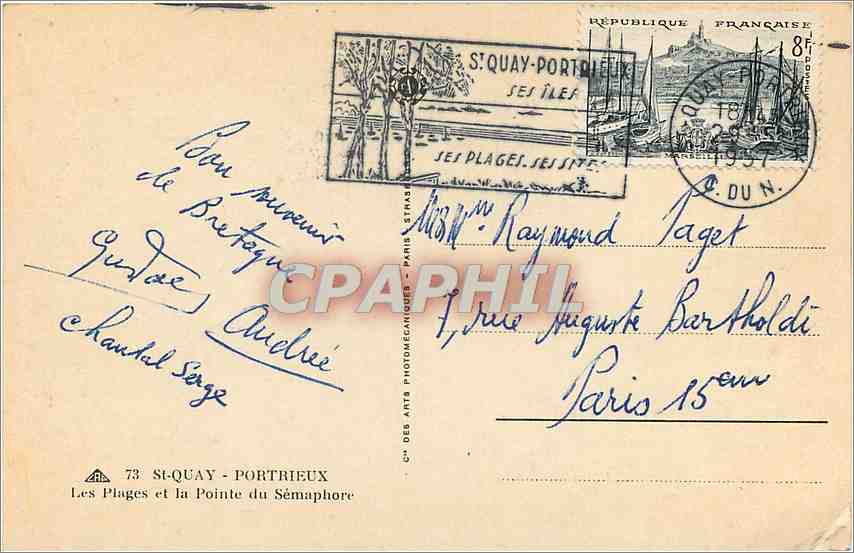 RÉPUBLIQUE FRANÇAISE
8F
POSTES
MARSEILLE
ST QUAY-PORTRIEUX
SES ÎLES
SES PLAGES. SES SITES
QUAY-PORT
18
1957
C. DU N.
Bon souvenir
de Bretagne
Andrée
Chantal Serge
Raymond Paget
7, rue Auguste Bartholdi
Paris 15eme
CPAPHIL
Cie DES ARTS PHOTOMÉCANIQUES - PARIS - STRASB
73 St-QUAY - PORTRIEUX
Les Plages et la Pointe du Sémaphore